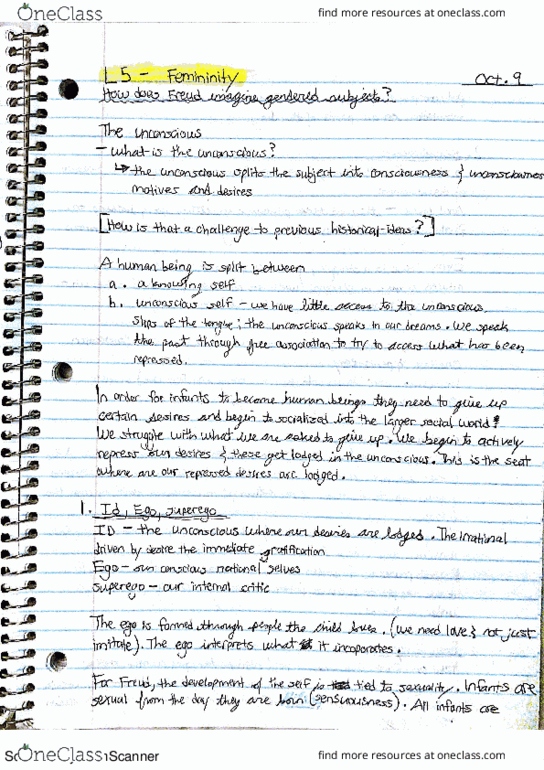 OneClass find more resources at oneclass.com
L5 - Femininity Oct. 9
How does Freud imagine gendered subjects?
The unconscious
- what is the unconscious?
↳ the unconscious splits the subject into consciousness & unconscious
motives and desires
[How is that a challenge to previous historical ideas?]
A human being is split between
a. a knowing self
b. unconscious self - we have little access to the unconscious,
slips of the tongue; the unconscious speaks in our dreams. We speak
the past through free association to try to access what has been
repressed.
In order for infants to become human beings they need to give up
certain desires and begin to socialized into the larger social world!
We struggle with what we are asked to give up. We begin to actively
repress our desires & these get lodged in the unconscious. This is the seat
where are our repressed desires are lodged.
1. Id, Ego, superego
ID - the unconscious where our desires are lodged. The irrational
driven by desire the immediate gratification
Ego - our conscious rational selves
superego - our internal critic
The ego is formed through people the child loves. (we need love & not just
imitate). The ego interprets what it incoporates.
For Freud, the development of the self is tied to sexuality. Infants are
sexual from the day they are born (sensuousness). All infants are
OneClass Scanner find more resources at oneclass.com